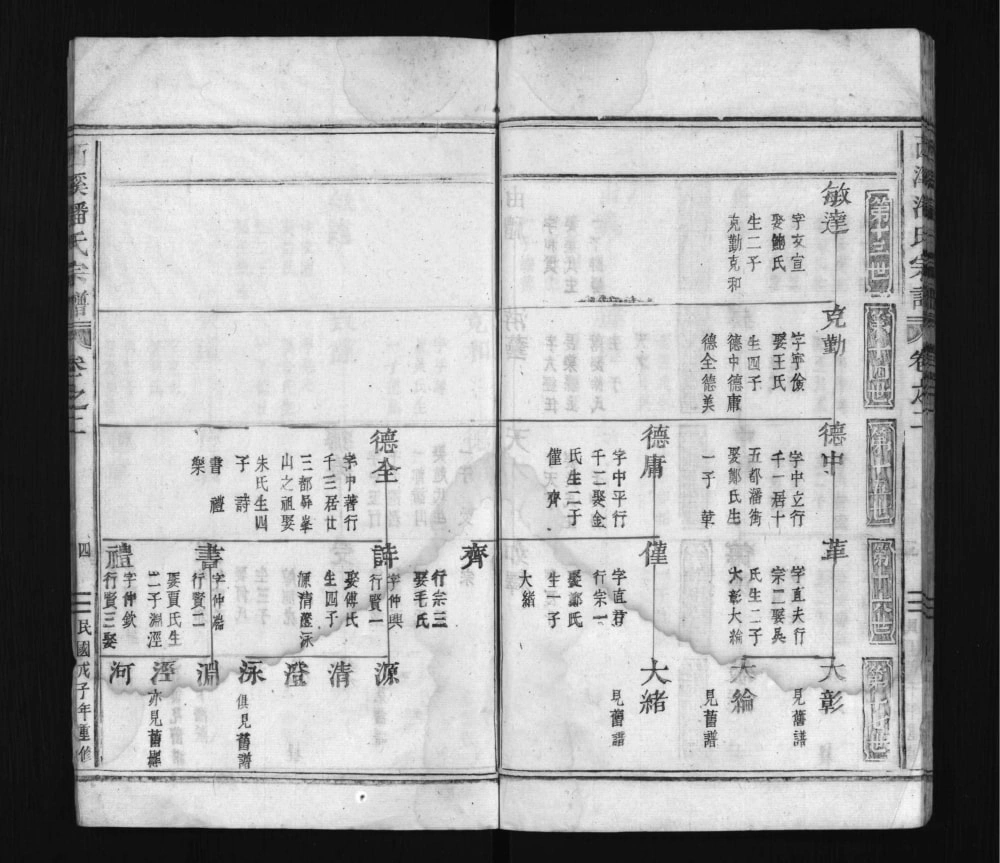 西溪潘氏宗譜 卷之二
第十三世
第十四世
第十五世
第十六世
第十七世
敏達
字友宣
娶鮑氏
生二子
克勤克和
克勤
字寧儉
娶王氏
生四子
德中德庸
德全德美
德中
字中立行
千一居十
五都潘衕
娶鄭氏生
一子 革
革
字直夫行
宗二娶吳
氏生二子
大彰大綸
大彰
見舊譜
大綸
見舊譜
德庸
字中平行
千二娶金
氏生二子
僅 齊
僅
字直君
行宗一
娶鄭氏
生一子
大緒
大緒
見舊譜
齊
行宗三
娶毛氏
德全
字中著行
千三居廿
三都舜峯
山之祖娶
朱氏生四
子 詩
書 禮
樂
詩
字仲興
行賢一
娶傅氏
生四子
源清澄泳
源
清
澄
泳
俱見舊譜
書
字仲
行賢二
娶賈氏生
二子淵涇
淵
涇
亦見舊
禮
字仲欽
行賢三娶
河
西溪潘氏宗譜 卷之二
四
民國戊子年重修